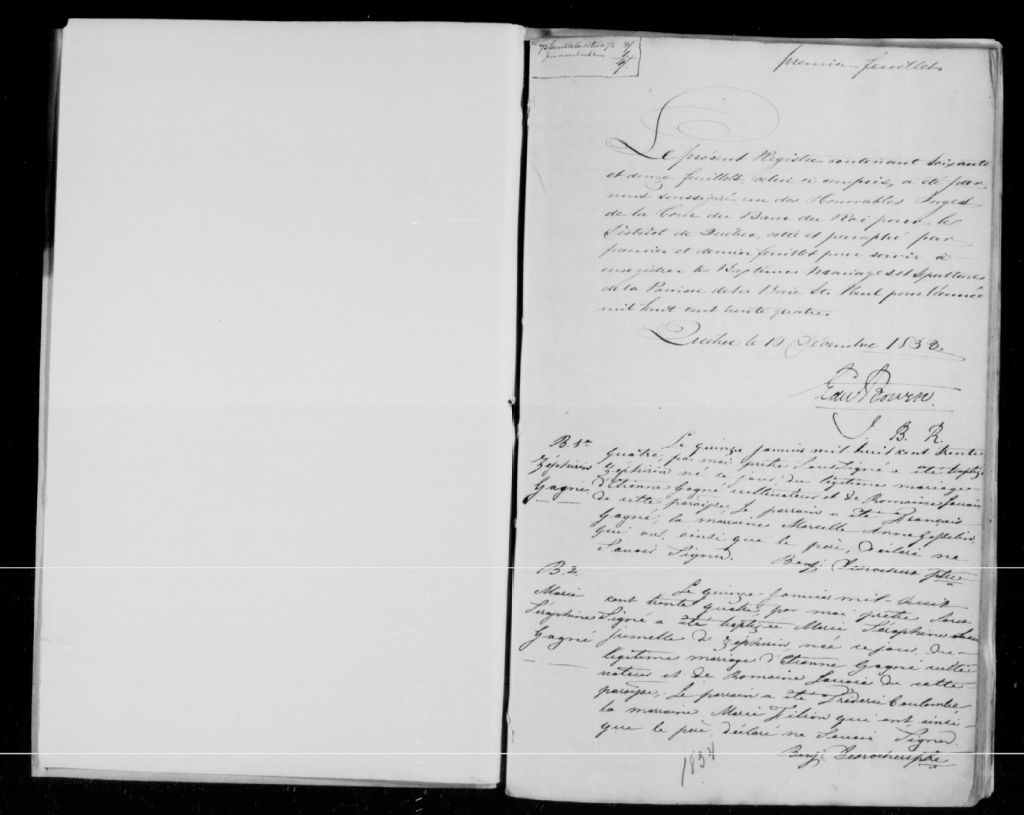 premier feuillet
Le présent Registre contenant Soixante
et douze feuillets celui ci compris, a été par
nous soussigné un des Honorables Juges
de la Cour du Banc du Roi pour le
District de Québec, cotté et paraphé par
premier et dernier feuillet pour servir à
enregistrer les Baptêmes Mariages et Sépultures
de la Paroisse de la Baie St. Paul pour l'année
mil huit cent trente quatre
Québec le 19 Décembre 1833.
Edw Bowen
J. B. R.
B. 1er
Zéphirin
Gagné
Le quinze Janvier mil huit cent trente
quatre, par moi prêtre Soussigné a été baptizé
Zéphirin né ce jour, du légitime mariage
d'Etienne Gagné cultivateur et de Romaine
de cette paroisse, Le parrain a été François
Gagné, la marraine Marcelle Anne
qui ont, ainsi que le père, déclaré ne
Savoir Signer. Benj. Desrochers ptre
B. 2.
Marie
Séraphine
Gagné
Le quinze Janvier mil huit
cent trente quatre, par moi prêtre Sous
Signé a été baptizée Marie Séraphine
jumelle de Zéphirin, née ce jour, du
légitime mariage d'Etienne Gagné culti
vateur et de Romaine de cette
paroisse. Le parrain a été Fréderic Coulombe
la marraine Marie Filion qui ont, ainsi
que le père, déclaré ne Savoir Signer.
Benj. Desrochers ptre
1834